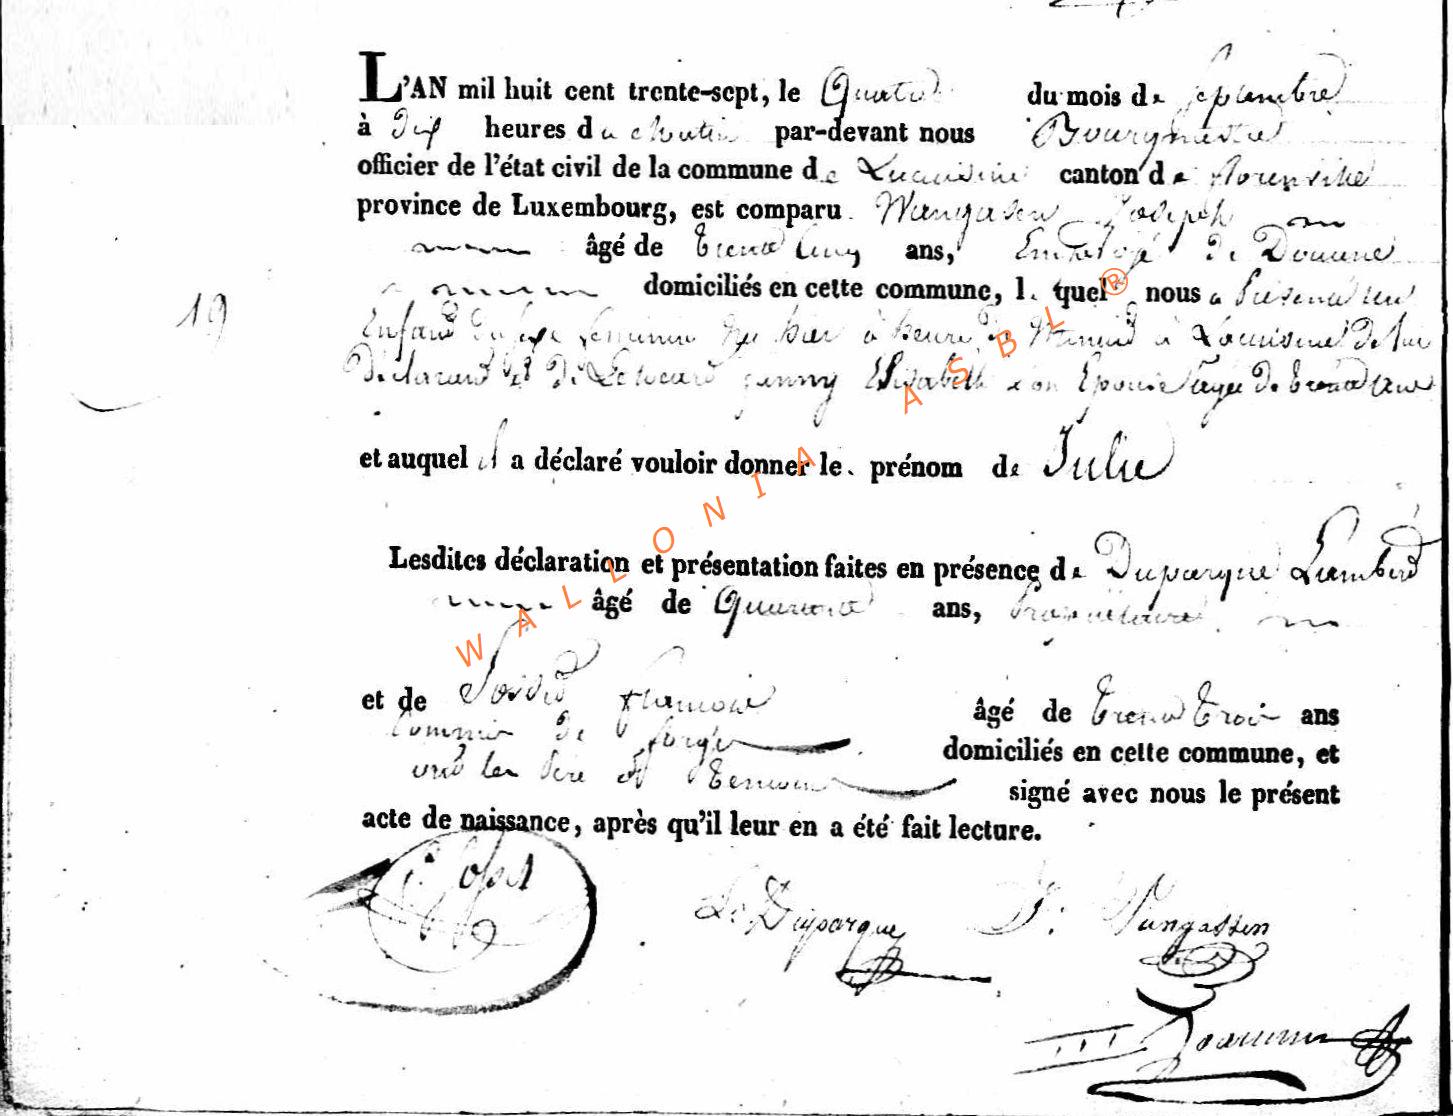 L'AN mil huit cent trente-sept, le Quatre du mois de Septembre
à Dix heures du Matin par-devant nous Bourgmestre
officier de l'état civil de la commune de canton de florenville
province de Luxembourg, est comparu Wangasen Joseph
âgé de trente Cinq ans, Employé de Douane
domiciliés en cette commune, l. quel nous a Presenté un
19
Enfant du sexe feminin né hier à heure de à de lui
Déclarant et de jenny Elisabeth son Epouse agée de trente ans
et auquel il a déclaré vouloir donner le prénom de Julie
Lesdites déclaration et présentation faites en présence de Duparque Lambert
âgé de Quarante ans, Propriétaire
et de françois âgé de trente trois ans
Commis de forges domiciliés en cette commune, et
ont les Père et temoins signé avec nous le présent
acte de naissance, après qu'il leur en a été fait lecture.
L. Duparque J. Vangassen
WALLONIA ASBL ®